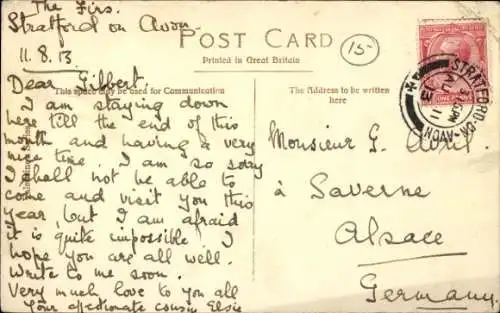 The Firs.
Stratford on Avon.
11.8.13
POST CARD
Printed in Great Britain
15
This space may be used for Communication
The Address to be written
here
Dear Gilbert.
I am staying down
here till the end of this
month and having a very
nice time. I am so sorry
I shall not be able to
come and visit you this
year, but I am afraid
it is quite impossible. I
hope you are all well.
Write to me soon.
Very much love to you all
Your affectionate cousin Elsie
Monsieur G. Avril.
à Saverne
Alsace
Germany.
STRATFORD-ON-AVON
11
13
ONE PENNY